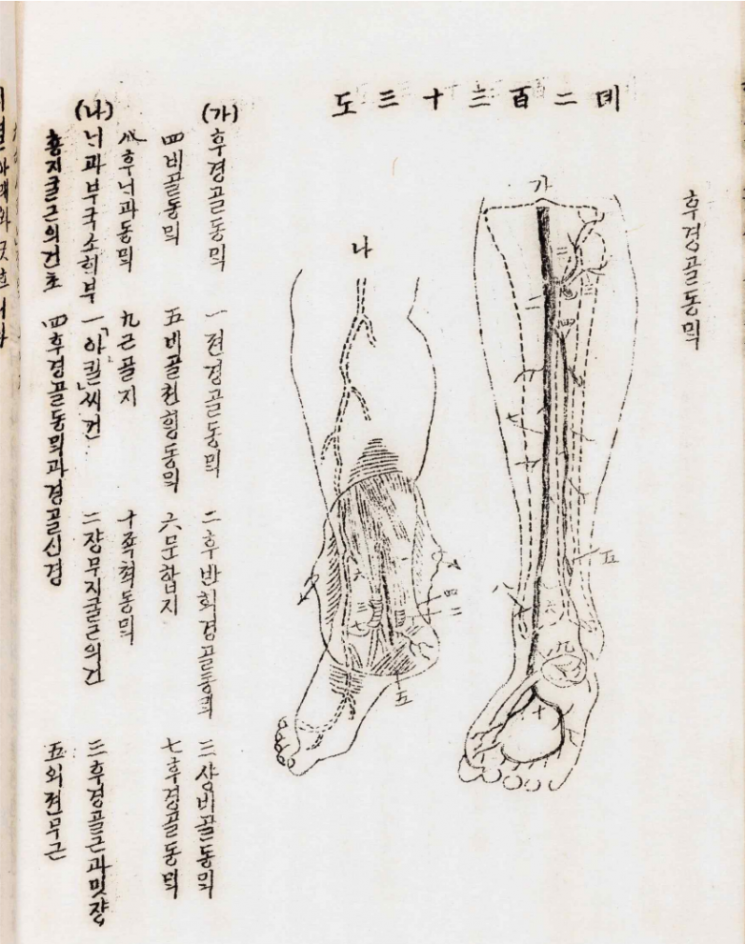 뎨二百三十三도
후경골동믹
가
三
二
四
五
八
六
九
十
나
六
三
七
一
四
二
五
(가)후경골동믹 一 젼경골동믹 二 후반회경골동믹 三 샹비골동믹
四 비골동믹 五 비골쳔힝동믹 六 문합지 七 후경골동믹
八 후너과동믹 九 근골지 十 족쳑동믹
(나)너과부국소히부 一「아킬」씨건 二 쟝무지굴근의건 三 후경골근과밋쟝
춍지굴근의건초 四 후경골동믹과경골신경 五 외젼무근